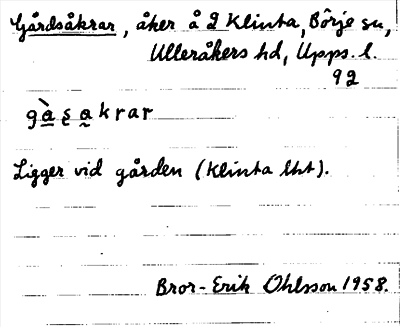 Gårdsåkrar, åker å 2 Klinta, Börje sn,
Ulleråkers hd, Upps. l.
92
gà̱s̨a̰krar
Ligger vid gården (Klinta lht).
Bror-Erik Ohlsson 1958.